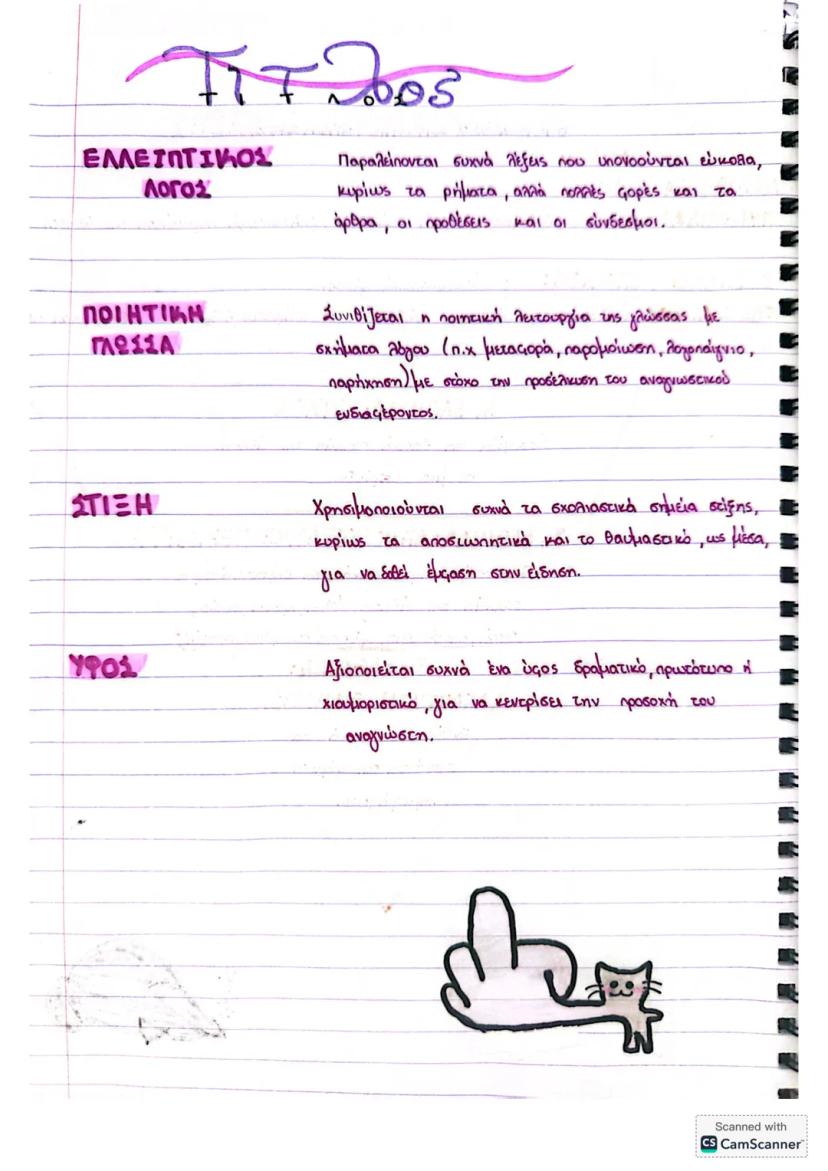 Τίτλος
ΕΛΛΕΙΠΤΙΚΟΣ
ΛΟΓΟΣ
Παραλείπονται συχνά λέξεις που υπονοούνται εύκολα,
κυρίως τα ρήματα, αλλά πολλές φορές και τα
άρθρα, οι προθέσεις και οι σύνδεσμοι.
ΠΟΙΗΤΙΚΗ
ΓΛΩΣΣΑ
Συνιθίζεται η ποιητική λειτουργία της γλώσσας με
σχήματα λόγου (π.χ μεταφορά, παρομοίωση, λογοπαίγνιο,
παρήχηση) με στόχο την προσέλκυση του αναγνωστικού
ενδιαφέροντος.
ΣΤΙΞΗ
Χρησιμοποιούνται συχνά τα σχολιαστικά σημεία στίξης,
κυρίως τα αποσιωπητικά και το θαυμαστικό, ως μέσα,
για να δοθεί έμφαση στην είδηση.
ΥΦΟΣ
Αξιοποιείται συχνά ένα ύφος δραματικό, πρωτότυπο ή
χιουμοριστικό, για να κεντρίσει την προσοχή του
αναγνώστη.
Scanned with
CS CamScanner